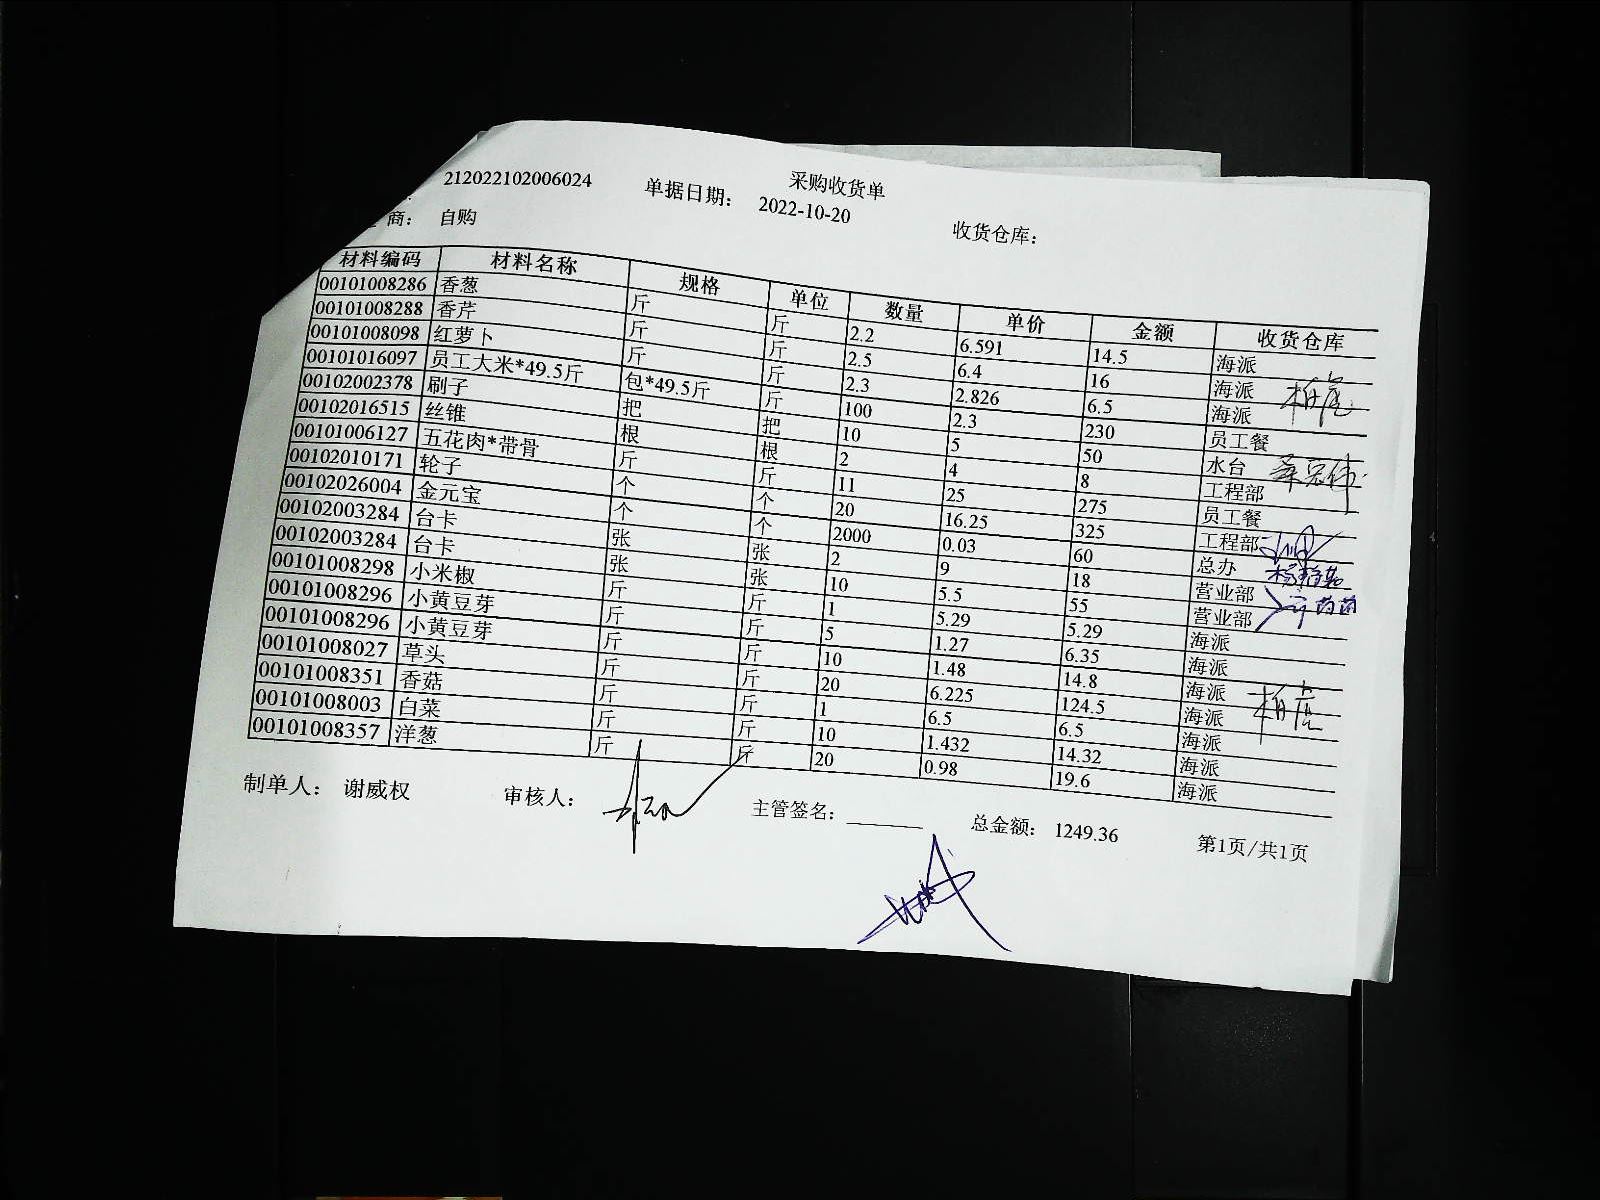 采购收货单
212022102006024 单据日期： 2022-10-20 收货仓库：
商： 自购
材料编码 材料名称 规格 单位 数量 单价 金额 收货仓库
00101008286 香葱 斤 斤 2.2 6.591 14.5 海派
00101008288 香芹 斤 斤 2.5 6.4 16 海派
00101008098 红萝卜 斤 斤 2.3 2.826 6.5 海派
00101016097 员工大米*49.5斤 包*49.5斤 斤 100 2.3 230 员工餐
00102002378 刷子 把 把 10 5 50 水台
00102016515 丝锥 根 根 2 4 8 工程部
00101006127 五花肉*带骨 斤 斤 11 25 275 员工餐
00102010171 轮子 个 个 20 16.25 325 工程部
00102026004 金元宝 个 个 2000 0.03 60 总办
00102003284 台卡 张 张 2 9 18 营业部
00102003284 台卡 张 张 10 5.5 55 营业部
00101008298 小米椒 斤 斤 1 5.29 5.29 海派
00101008296 小黄豆芽 斤 斤 5 1.27 6.35 海派
00101008296 小黄豆芽 斤 斤 10 1.48 14.8 海派
00101008027 草头 斤 斤 20 6.225 124.5 海派
00101008351 香菇 斤 斤 1 6.5 6.5 海派
00101008003 白菜 斤 斤 10 1.432 14.32 海派
00101008357 洋葱 斤 斤 20 0.98 19.6 海派
制单人： 谢威权 审核人： 主管签名： 总金额： 1249.36 第1页/共1页